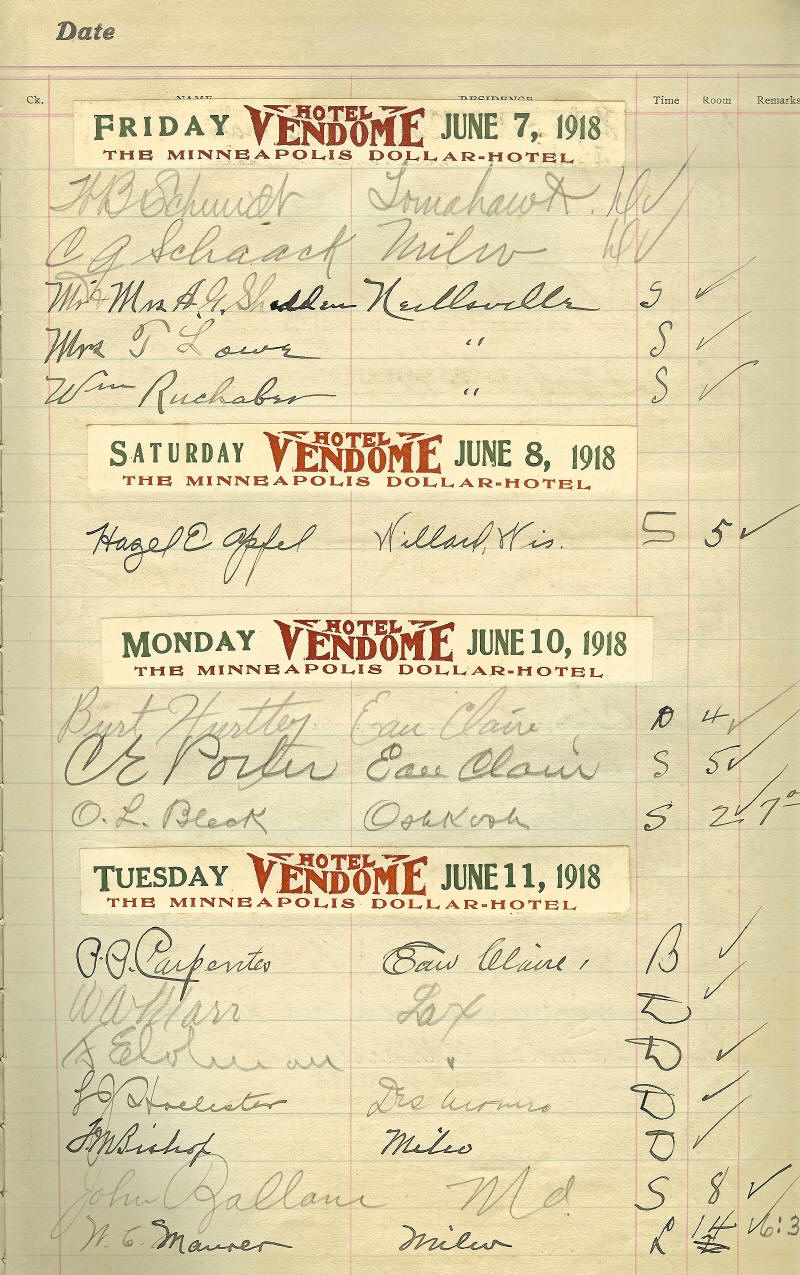 Date
Ck. NAME RESIDENCE Time Room Remarks
FRIDAY HOTEL VENDOME JUNE 7, 1918
THE MINNEAPOLIS DOLLAR-HOTEL
B Schmidt Tomahawk.
C G Schaack Milw
Mr & Mrs A. G. Shedden Neillsville S ✓
Mrs T Lowe " S ✓
Wm Ruchaber " S ✓
SATURDAY HOTEL VENDOME JUNE 8, 1918
THE MINNEAPOLIS DOLLAR-HOTEL
Hazel E Apfel Willard, Wis. S 5 ✓
MONDAY HOTEL VENDOME JUNE 10, 1918
THE MINNEAPOLIS DOLLAR-HOTEL
Burt Hurtley Eau Claire D 4 ✓
C E Porter Eau Clair S 5 ✓
O. L. Bleck Oshkosh S 2 ✓
TUESDAY HOTEL VENDOME JUNE 11, 1918
THE MINNEAPOLIS DOLLAR-HOTEL
P. P. Carpenter Eau Claire, B ✓
W A Marr Lax D ✓
" D ✓
Hollister D ✓
Bishop Milw D ✓
John Ballani Md. S 8 ✓
W. C. Maurer Milw L 14 ✓ 6:3